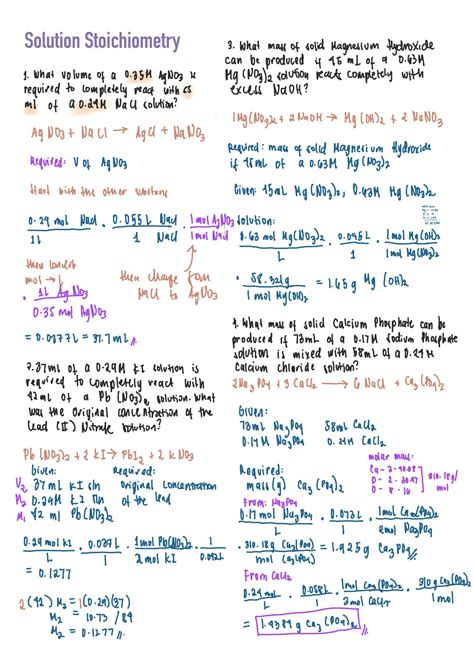 Solution Stoichiometry
1. What volume of a 0.35M AgNO3 is
required to completely react with 55
ml of a 0.24M NaCl solution?
AgNO3 + NaCl → AgCl + NaNO3
Required: V of AgNO3
Start with the other
0.29 mol NaCl . 0.055L NaCl . 1mol AgNO3
1L 1 NaCl 1mol NaCl
then
mol → L then change from
NaCl to AgNO3
. 1L AgNO3
0.35 mol AgNO3
= 0.0377L = 37.7mL
2. 37ml of a 0.29M KI solution is
required to completely react with
42ml of a Pb(NO3)2 solution. What
was the original concentration of the
Lead (II) Nitrate solution?
Pb(NO3)2 + 2KI → PbI2 + 2KNO3
Given: Required:
V2 37mL KI sln Original concentration
M2 0.29M KI sln of the lead
M1 42 ml Pb(NO3)2
0.29 mol KI . 0.037L . 1mol Pb(NO3)2 . 1
L 1 2mol KI 0.042L
= 0.1277
2(42) M2 = 1(0.29)(37)
M2 = 10.73/84
M2 = 0.1277
3. What mass of solid Magnesium Hydroxide
can be produced if 45 ml of a 0.63M
Mg(NO3)2 solution reacts completely with
excess NaOH?
1Mg(NO3)2 + 2NaOH → Mg(OH)2 + 2NaNO3
Required: mass of solid Magnesium Hydroxide
if 45ml of a 0.63M Mg(NO3)2
Given: 45mL Mg(NO3)2, 0.63M Mg(NO3)2
solution:
0.63 mol Mg(NO3)2 . 0.045L . 1mol Mg(OH)2
L 1 1mol Mg(NO3)2
. 58.321g = 1.65g Mg(OH)2
1mol Mg(OH)2
4. What mass of solid Calcium Phosphate can be
produced if 73mL of a 0.17M sodium Phosphate
solution is mixed with 58mL of a 0.24M
Calcium chloride solution?
2Na3PO4 + 3CaCl2 → 6NaCl + Ca3(PO4)2
Given:
73mL Na3PO4 58mL CaCl2
0.17M Na3PO4 0.24M CaCl2
Required:
mass(g) Ca3(PO4)2
molar mass:
310.18g/
mol
From: Na3PO4
0.17 mol Na3PO4 . 0.073L . 1mol Ca3(PO4)2
L 1 2mol Na3PO4
. 310.18g Ca3(PO4)2 = 1.925g Ca3PO4
1mol Ca3(PO4)2
From CaCl2
0.24 mol . 0.058L . 1mol Ca3(PO4)2 . 310g Ca3(PO4)2
L 1 3mol CaCl2 1mol
1.4384g Ca3(PO4)2